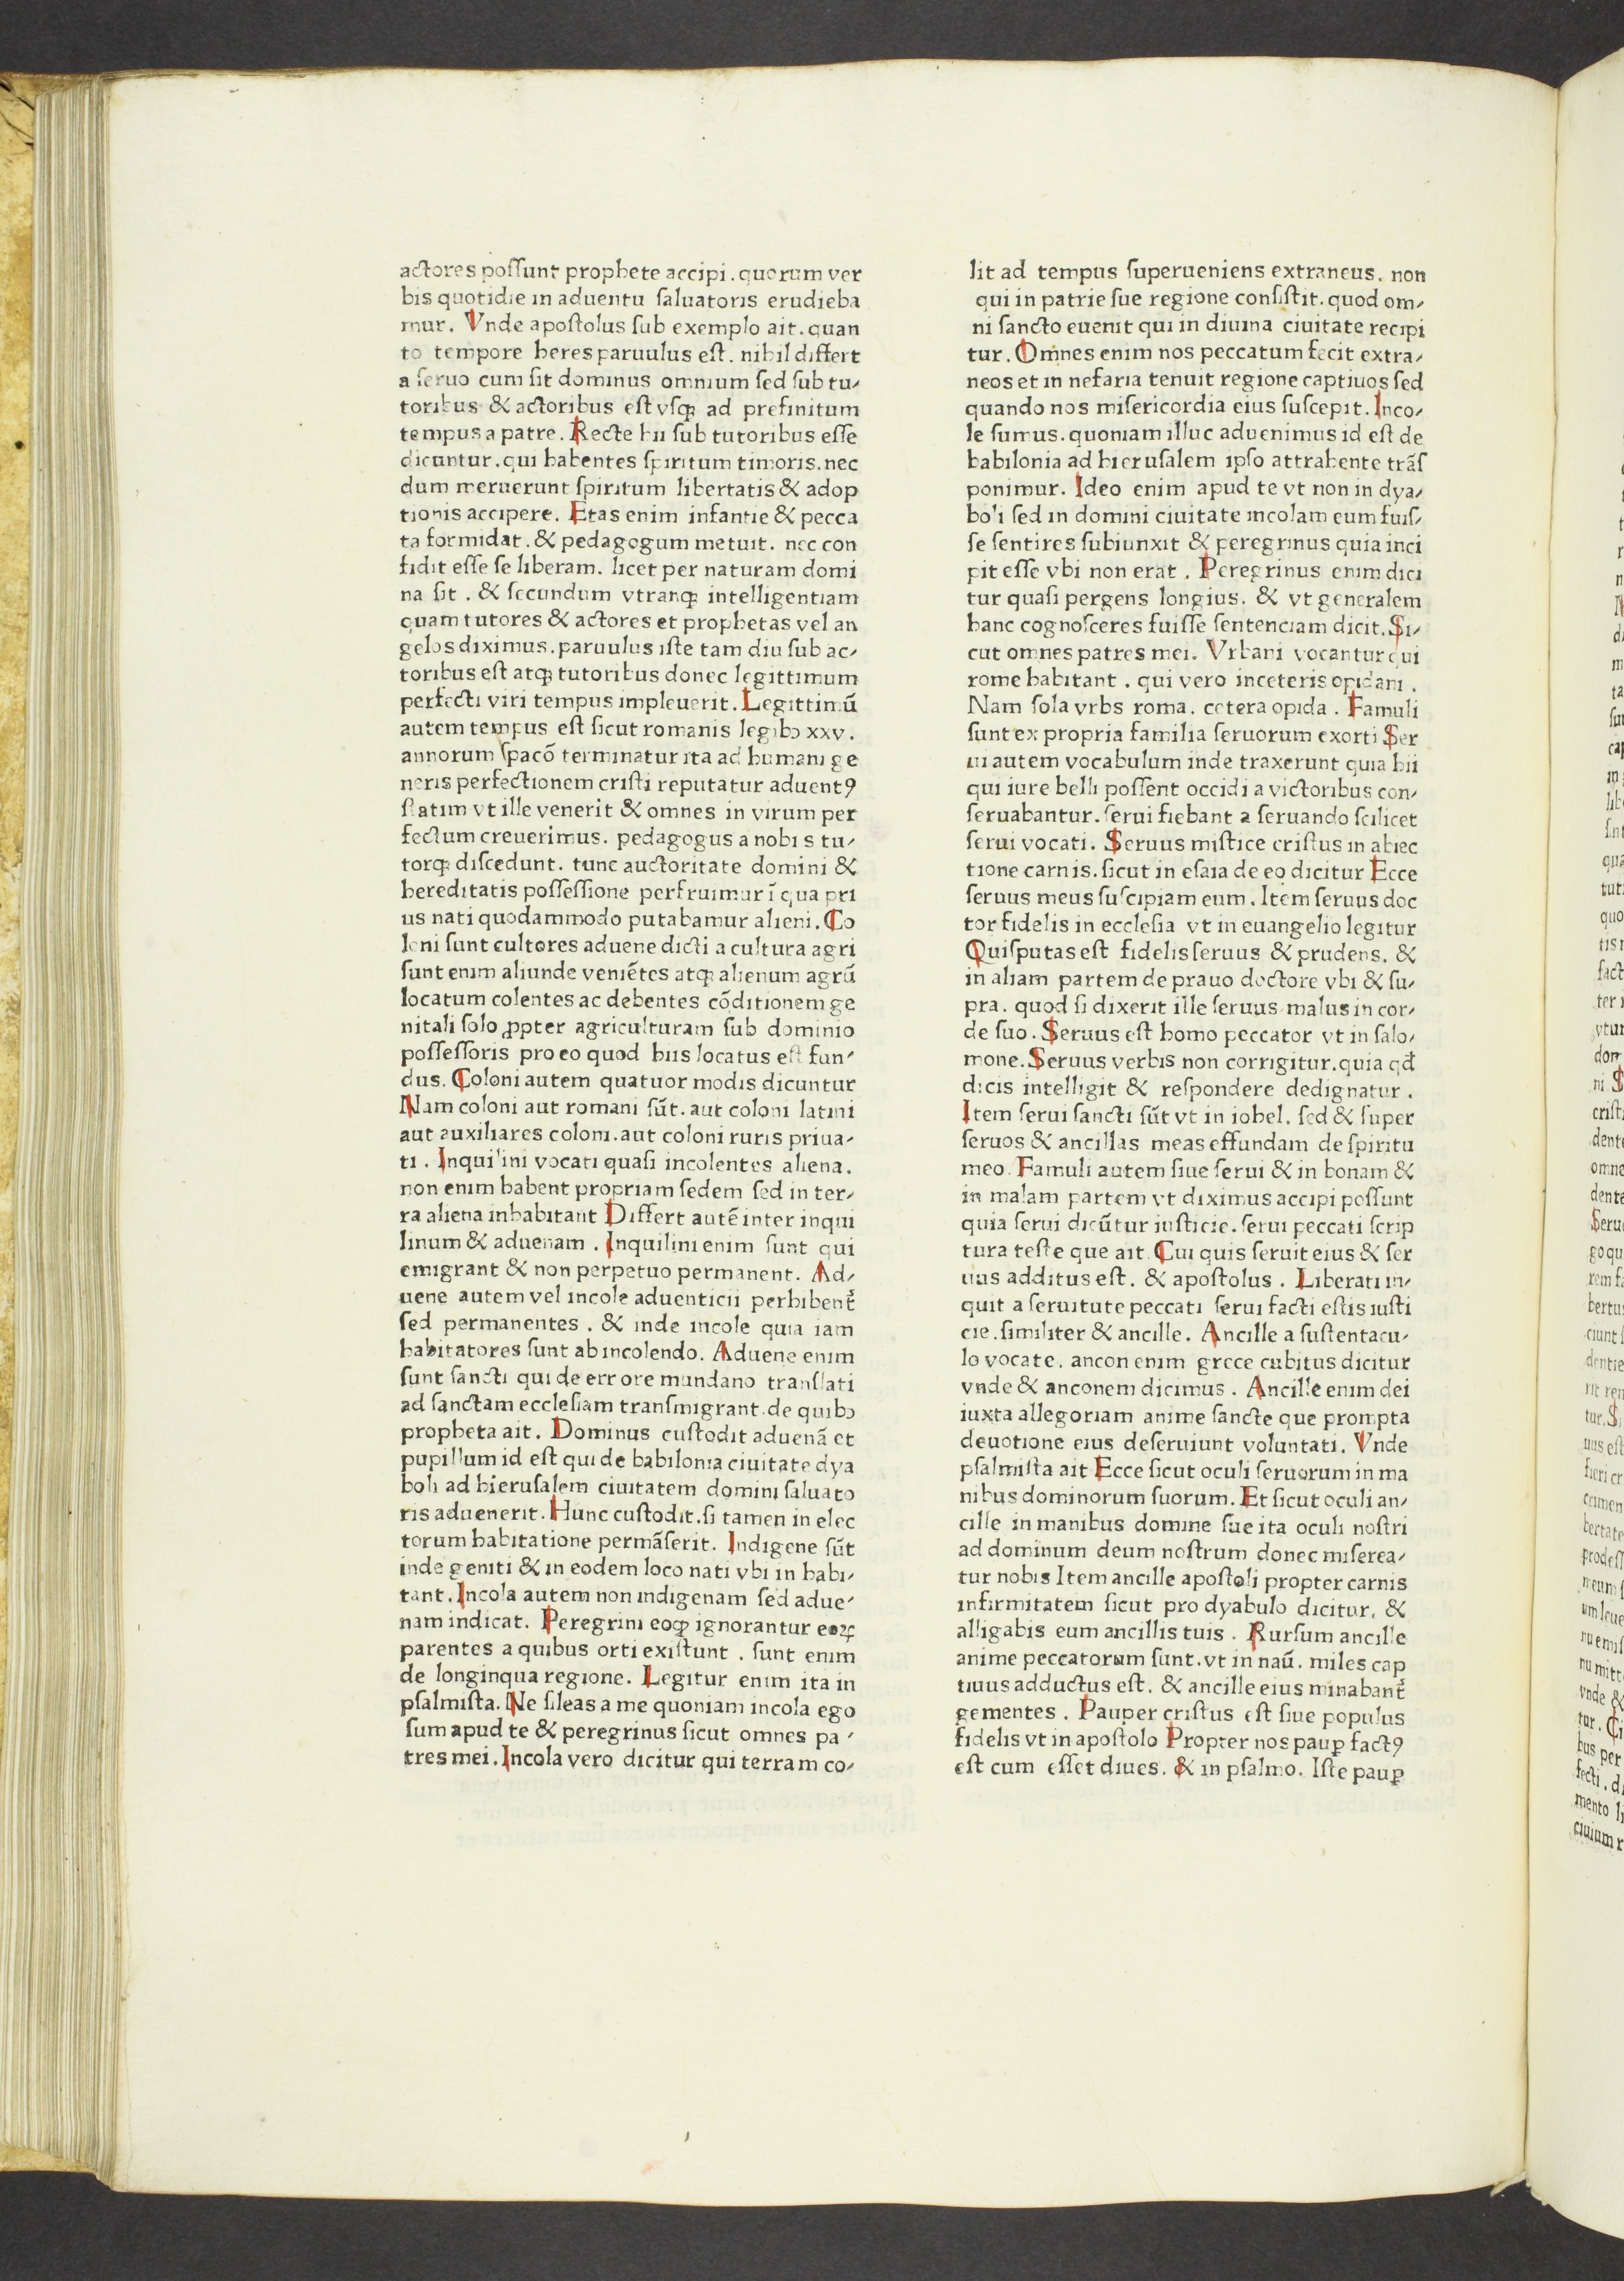 actores poſſunt prophete accipi. quorum ver
bis quotidie in aduentu ſaluatoris erudieba
mur. Vnde apoſtolus ſub exemplo ait. quan
to tempore heres paruulus eſt. nihil differt
a ſeruo cum ſit dominus omnium ſed ſub tu⸗
toribus & actoribus eſt vſqꝫ ad prefinitum
tempus a patre. Recte hii ſub tutoribus eſſe
dicuntur. qui habentes ſpiritum timoris. nec
dum meruerunt ſpiritum libertatis & adop
tionis accipere. Etas enim infantie & pecca
ta formidat. & pedagogum metuit. nec con
fidit eſſe ſe liberam. licet per naturam domi
na ſit. & ſecundum vtranqꝫ intelligentiam
quam tutores & actores et prophetas vel an
gelos diximus. paruulus iſte tam diu ſub ac⸗
toribus eſt atqꝫ tutoribus donec legittimum
perfecti viri tempus impleuerit. Legittimū
autem tempus eſt ſicut romanis legibꝫ xxv.
annorum ſpacō terminatur ita ad humani ge
neris perfectionem criſti reputatur aduentꝰ
ſtatim vt ille venerit & omnes in virum per
fectum creuerimus. pedagogus a nobis tu⸗
torqꝫ diſcedunt. tunc auctoritate domini &
hereditatis poſſeſſione perfruimur ī qua pri
us nati quodammodo putabamur alieni. Co
loni ſunt cultores aduene dicti a cultura agri
ſunt enim aliunde veniētes atqꝫ alienum agrū
locatum colentes ac debentes cōditionem ge
nitali ſolo ꝓpter agriculturam ſub dominio
poſſeſſoris pro eo quod hiis locatus eſt fun⸗
dus. Coloni autem quatuor modis dicuntur
Nam coloni aut romani ſūt. aut coloni latini
aut auxiliares coloni. aut coloni ruris priua⸗
ti. Inquilini vocati quaſi incolentes aliena.
non enim habent propriam ſedem ſed in ter⸗
ra aliena inhabitant Differt autē inter inqui
linum & aduenam. Inquilini enim ſunt qui
emigrant & non perpetuo permanent. Ad⸗
uene autem vel incole aduenticii perhibent̄
ſed permanentes. & inde incole quia iam
habitatores ſunt ab incolendo. Aduene enim
ſunt ſancti qui de errore mundano tranſlati
ad ſanctam eccleſiam tranſmigrant. de quibꝫ
propheta ait. Dominus cuſtodit aduenā et
pupillum id eſt qui de babilonia ciuitate dya
boli ad hieruſalem ciuitatem domini ſaluato
ris aduenerit. Hunc cuſtodit. ſi tamen in elec
torum habitatione permāſerit. Indigene ſūt
inde geniti & in eodem loco nati vbi in habi⸗
tant. Incola autem non indigenam ſed adue⸗
nam indicat. Peregrini eoqꝫ ignorantur eoꝝ
parentes a quibus orti exiſtunt. ſunt enim
de longinqua regione. Legitur enim ita in
pſalmiſta. Ne ſileas a me quoniam incola ego
ſum apud te & peregrinus ſicut omnes pa⸗
tres mei. Incola vero dicitur qui terram co⸗
lit ad tempus ſuperueniens extraneus. non
qui in patrie ſue regione conſiſtit. quod om⸗
ni ſancto euenit qui in diuina ciuitate recipi
tur. Omnes enim nos peccatum fecit extra⸗
neos et in nefaria tenuit regione captiuos ſed
quando nos miſericordia eius ſuſcepit. Inco⸗
le ſumus. quoniam illuc aduenimus id eſt de
babilonia ad hieruſalem ipſo attrahente trāſ
ponimur. Ideo enim apud te vt non in dya⸗
boli ſed in domini ciuitate incolam eum fuiſ⸗
ſe ſentires ſubiunxit & peregrinus quia inci
pit eſſe vbi non erat. Peregrinus enim dici
tur quaſi pergens longius. & vt generalem
hanc cognoſceres fuiſſe ſentenciam dicit. Si⸗
cut omnes patres mei. Vrbani vocantur qui
rome habitant. qui vero in ceteris opidani.
Nam ſola vrbs roma. cetera opida. Famuli
ſunt ex propria familia ſeruorum exorti Ser
ui autem vocabulum inde traxerunt quia hii
qui iure belli poſſent occidi a victoribus con⸗
ſeruabantur. ſerui fiebant a ſeruando ſcilicet
ſerui vocati. Seruus miſtice criſtus in abiec
tione carnis. ſicut in eſaia de eo dicitur Ecce
ſeruus meus ſuſcipiam eum. Item ſeruus doc
tor fidelis in eccleſia vt in euangelio legitur
Quiſputas eſt fidelis ſeruus & prudens. &
in aliam partem de prauo doctore vbi & ſu⸗
pra. quod ſi dixerit ille ſeruus malus in cor⸗
de ſuo. Seruus eſt homo peccator vt in ſalo⸗
mone. Seruus verbis non corrigitur. quia qđ
dicis intelligit & reſpondere dedignatur.
Item ſerui ſancti ſūt vt in iohel. ſed & ſuper
ſeruos & ancillas meas effundam de ſpiritu
meo. Famuli autem ſiue ſerui & in bonam &
in malam partem vt diximus accipi poſſunt
quia ſerui dicūtur iuſticie. ſerui peccati ſcrip
tura teſte que ait. Cui quis ſeruit eius & ſer
uus additus eſt. & apoſtolus. Liberati in⸗
quit a ſeruitute peccati ſerui facti eſtis iuſti
cie. ſimiliter & ancille. Ancille a ſuſtentacu⸗
lo vocate. ancon enim grece cubitus dicitur
vnde & anconem dicimus. Ancille enim dei
iuxta allegoriam anime ſancte que prompta
deuotione eius deſeruiunt voluntati. Vnde
pſalmiſta ait Ecce ſicut oculi ſeruorum in ma
nibus dominorum ſuorum. Et ſicut oculi an⸗
cille in manibus domine ſue ita oculi noſtri
ad dominum deum noſtrum donec miſerea⸗
tur nobis Item ancille apoſtoli propter carnis
infirmitatem ſicut pro dyabulo dicitur. &
alligabis eum ancillis tuis. Rurſum ancille
anime peccatorum ſunt. vt in naū. miles cap
tiuus adductus eſt. & ancille eius minabant̄
gementes. Pauper criſtus eſt ſiue populus
fidelis vt in apoſtolo Propter nos pauꝑ factꝰ
eſt cum eſſet diues. & in pſalmo. Iſte pauꝑ